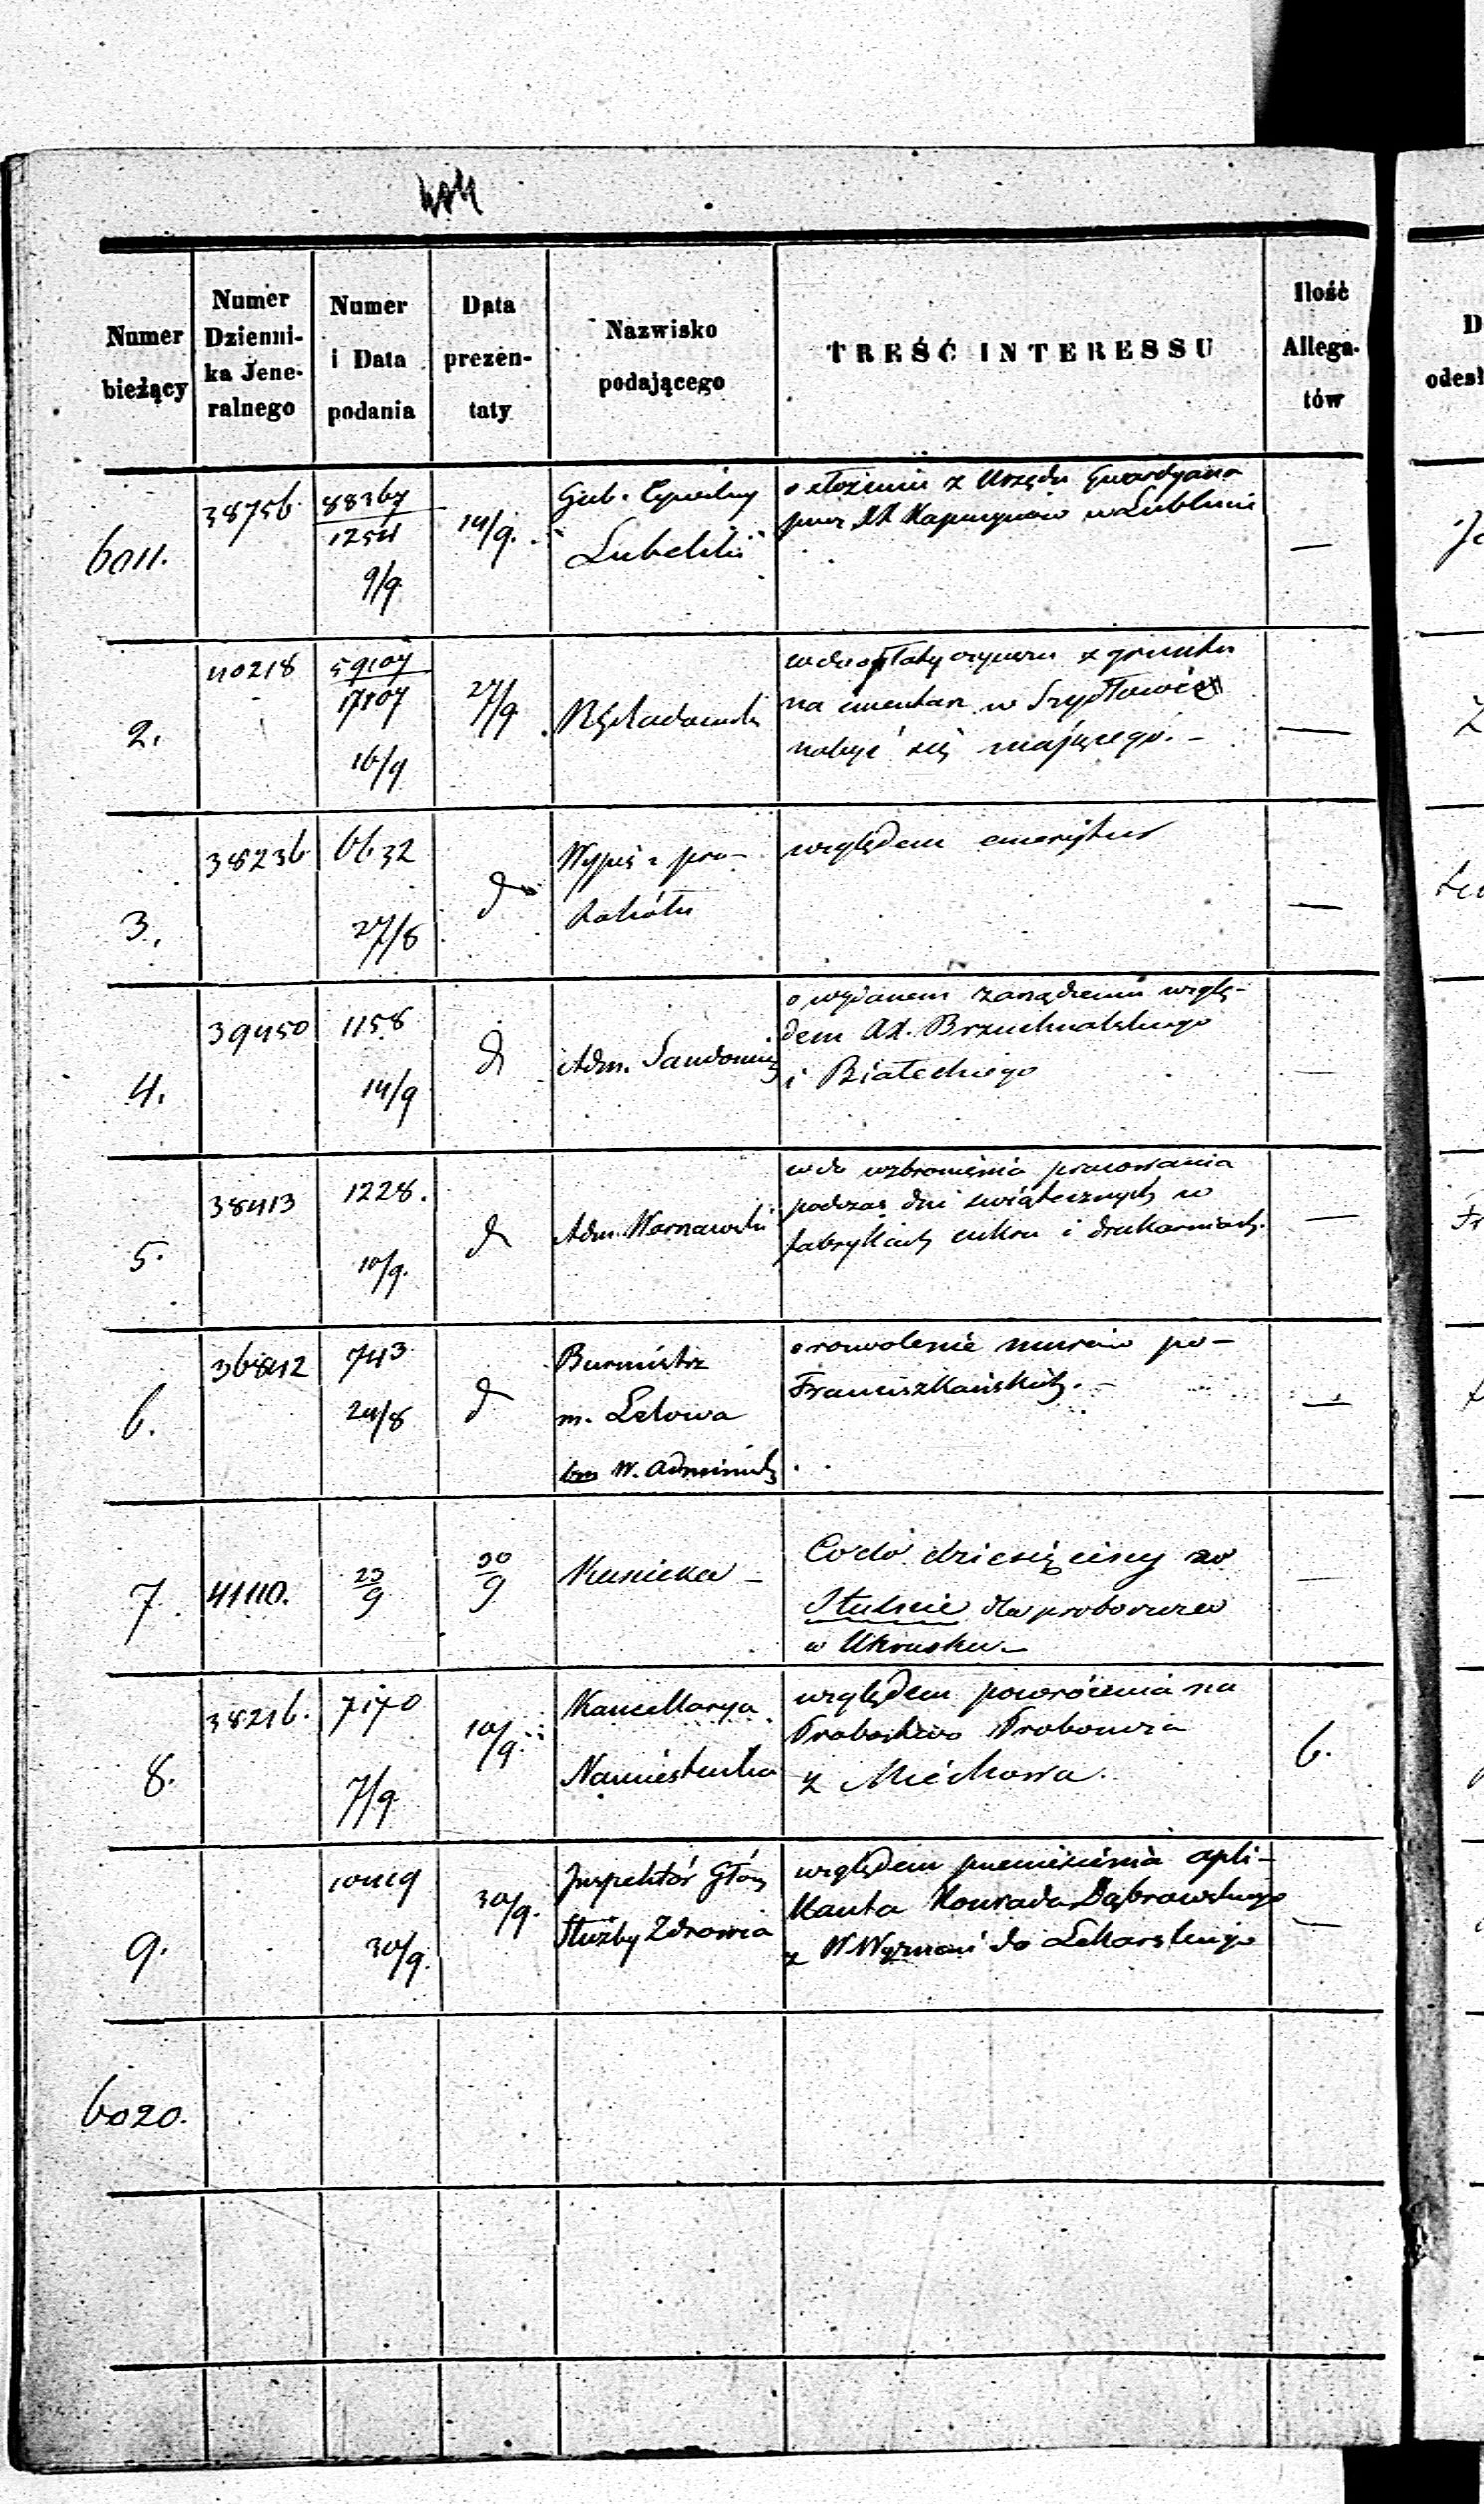 Numer bieżący
Numer Dzienni- ka Jene- ralnego
Numer i Data podania
Data prezen- taty
Nazwisko podającego
TREŚĆ INTERESSU
Ilość Allega- tów
6011.
38756
88367
1254
9/9
14/9.
Gub. Cywilny
Lubelski
o złożeniu z Urzędu Gwardyana
przez XX Kapucynów w Lublinie
—
2.
40218
59107
17807
16/9
27/9
na cmentarz w Szydłowcu
nabyć się mającego. —
—
3.
38236
6632
27/8
do
Wypis z pro-
tokółu
względem emerytur
—
4.
39450
1158
14/9
d
Adm. Sandomir
o wydanem zarządzeniu wzglę-
dem XX. Brzuchalskiego
i Białeckiego
—
5.
38413
1228.
10/9.
d
Adm. Warszawski
wzbronienia pracowania
podczas dni świątecznych w
fabrykach cukru i drukarniach.
—
6.
36842
743
24/8
d
Burmistrz
m. Lelowa
W.
o rozwolenie murów po-
Franciszkańskich. —
—
7.
41110.
23/9
30/9
Kunicka —
Co do dziesięciny ze
Stulnie dla proboszcza
w Uhrusku. —
—
8.
38216.
7170
7/9
10/9
Kancellarya
Namiestnika
względem powrócenia na
Probostwo Proboszcza
z Miechowa.
6.
9.
10419
30/9.
30/9.
Inspektór Głów
Służby Zdrowia
względem przeniesienia apli-
kanta Konrada Dąbrowskiego
z W. Wyznań do Lekarskiego
—
6020.